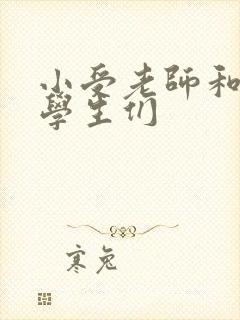 小受老師和
學生们
寒兔